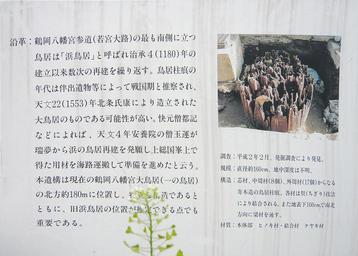 沿革:鶴岡八幡宮参道(若宮大路)の最も南側に立つ
鳥居は「浜鳥居」と呼ばれ治承4(1180)年の
建立以来数次の再建を繰り返す。鳥居柱痕の
年代は伴出遺物等によって戦国期と推察され、
天文22(1553)年北条氏康により造立された
大鳥居のものである可能性が高い。快元僧都記
などによれば、天文4年安養院の僧玉運が
瑞夢から浜の鳥居の再建を発願し上総国峯上で
得た用材を海路運搬して準備を進めたと云う。
本遺構は現在の鶴岡八幡宮大鳥居(一の鳥居)
の北方約180mに位置し、
造であると
ともに、旧浜鳥居の位置が
できる点でも
重要である。
調査:平成2年2月、発掘調査により発見。
規模:直径約160cm、地中深度は不明。
構造:芯材、中周材(8個)、外周材(17個)からなる
寄木造の鳥居柱痕。各材は契(ちぎり)技法
により結合される。また地表下160cmで南北
方向に梁材を通す。
材質:本体部 ヒノキ材・結合材 ケヤキ材